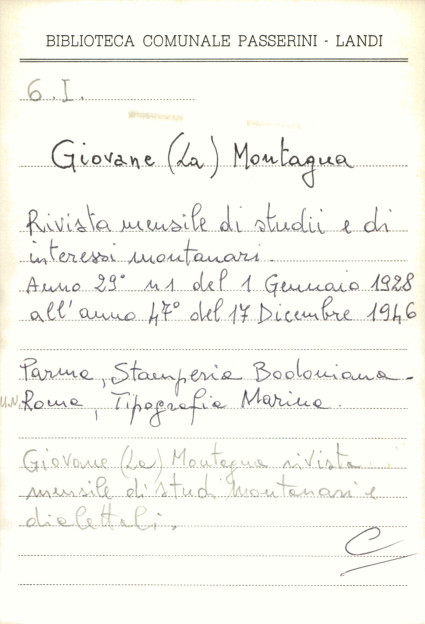 BIBLIOTECA COMUNALE PASSERINI - LANDI
6.I.
Giovane (La) Montagna
Rivista mensile di studii e di
interessi montanari.
Anno 29° n1 del 1 Gennaio 1928
all'anno 47° del 17 Dicembre 1946
Parma, Stamperia Bodoniana -
Roma, Tipografia Marina.
Giovane (La) Montagna rivista
mensile di studi montanari e
dialettali.